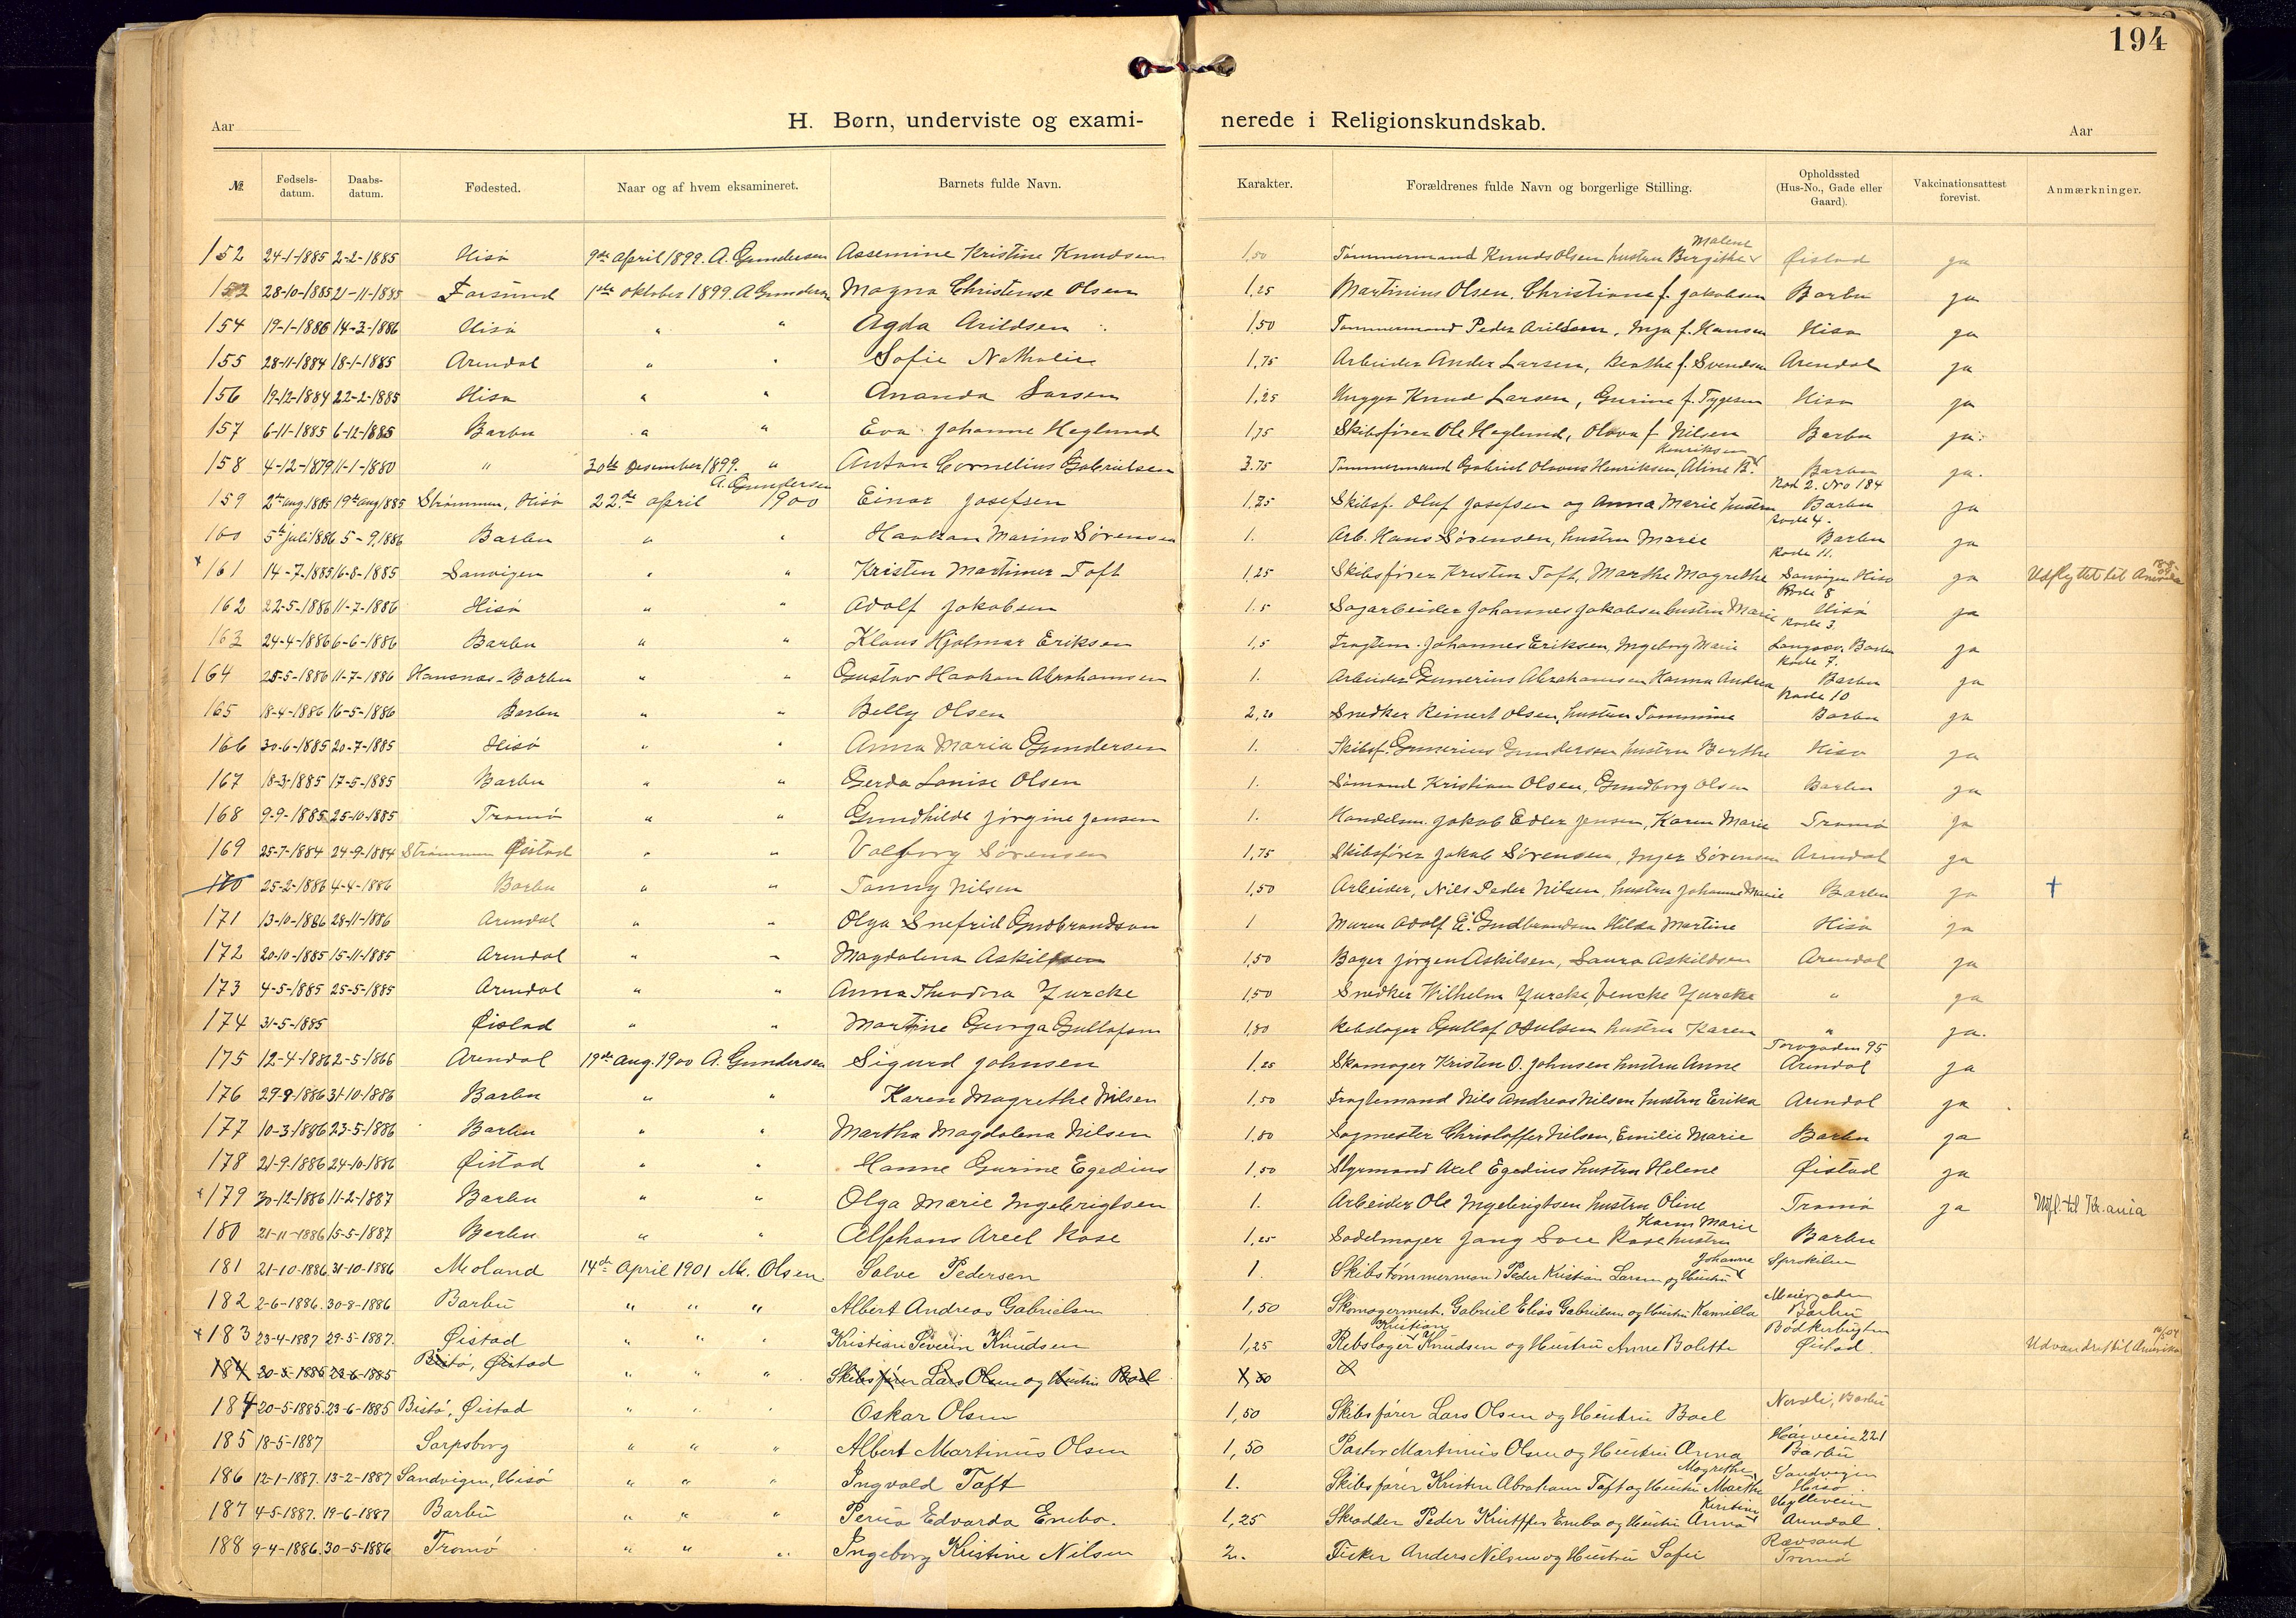 194
Aar
H. Børn, underviste og exami- nerede i Religionskundskab.
Aar
№ Fødsels-datum. Daabs-datum. Fødested. Naar og af hvem eksamineret. Barnets fulde Navn. Karakter. Forældrenes fulde Navn og borgerlige Stilling. Opholdssted (Hus-No., Gade eller Gaard). Vakcinationsattest forevist. Anmærkninger.
152 24-1-1885 2-2-1885 Hisö 9de April 1899. A. Gundersen Assemine Kristine Knudsen 1,50 Tømmermand Knuds Olsen hustru Birgithe Malene Øistad ja
153 28-10-1885 21-11-1885 Farsund 1ste Oktober 1899. A Gundersen Magna Christense Olsen 1,25 Martinius Olsen, Christiane f. Jakobsen Barbu ja
154 19-1-1886 14-3-1886 Hisö " " Agda Arildsen 1,50 Tømmermand Peder Arildsen, Inga f. Hansen Hisö ja
155 28-11-1884 18-1-1885 Arendal " " Sofie Nathalie 1,75 Arbeider Ander Larsen, Berthe f. Svendsen Arendal ja
156 19-12-1884 22-2-1885 Hisö " " Ananda Larsen 1,25 Hugger Knud Larsen, Gurine f. Tygesen Hisö ja
157 6-11-1885 6-12-1885 Barbu " " Eva Johanne Heglund 1,75 Skibsfører Ole Heglund, Olava f Nilsen Barbu ja
158 4-12-1879 11-1-1880 " 30te Desember 1899. " Anton Cornelius Gabrielsen 3.75 Tømmermand Gabriel Olavus Henriksen, Aline B. Henriksen Barbu ja.
159 2de aug 1885 19de aug 1885 Strømmen, Hisö 22de April 1900 A. Gundersen Einar Josefsen 1,25 Skibsf. Oluf Josefsen og Anna Marie hustru Rod 2. No 184 Barbu ja
160 5te juli 1886 5-9-1886 Barbu " " Haakon Marino Sörensen 1. Arb. Hans Sörensen, hustru Marie Rode 4. Barbu ja
× 161 14-7-1885 16-8-1885 Sanvigen " " Kristen Martinus Toft 1,25 Skibsfører Kristen Toft, Marthe Magrethe Rode 11. Sanvigen Hisö ja Udflyttet til Amerika
162 22-5-1886 11-7-1886 Hisö " " Adolf Jakobsen 1.5 Sagarbeider Johannes Jakobsen hustru Marie Rode 8 Hisö ja
163 24-4-1886 6-6-1886 Barbu " " Klaus Hjalmar Eriksen 1,5 Fragtem. Johannes Eriksen, Ingeborg Marie Rode 3. Langsæv. Barbu ja
164 25-5-1886 11-7-1886 Hansnæs-Barbu " " Gustav Haakon Abrahamsen 1. Arbeider Gunerius Abrahamsen Hanna Andrea Rode 7. Barbu ja
165 18-4-1886 16-5-1886 Barbu " " Belly Olsen 2,20 Snedker Reinert Olsen, hustru Tommine Rode 10 Barbu ja
166 30-6-1885 20-7-1885 Hisö " " Anna Maria Gundersen 1. Skibsf. Gunerius Gundersen hustru Berthe Hisö ja
167 18-3-1885 17-5-1885 Barbu " " Gerda Louise Olsen 1. Sömand Kristian Olsen, Gundborg Olsen Barbu ja
168 9-9-1885 25-10-1885 Tromö " " Gundhilde Jörgine Jensen 1. Handelsm. Jakob Edler Jensen, Karen Marie Tromö ja
169 25-7-1884 24-9-1884 Strømmen Øistad " " Valborg Sörensen 1,75 Skibsfører Jakob Sörensen, Inger Sörensen Arendal ja
170 25-2-1886 4-4-1886 Barbu " " Tonny Nilsen 1,50 Arbeider, Nils Peder Nilsen, hustru Johanne Marie Barbu ja †
171 13-10-1886 28-11-1886 Arendal " " Olga Snefrid Gudbrandson 1 Murer Adolf E. Gudbrandsen Hilda Martine Hisö ja
172 20-10-1885 15-11-1885 Arendal " " Magdalena Askildsen 1,50 Bager Jörgen Askilsen, Laura Askildsen Arendal ja
173 4-5-1885 25-5-1885 Arendal " " Anna Theodora Jurcke 1,50 Snedker Wilhelm Jurcke, Vencke Jurcke " ja
174 31-5-1885 Øistad " " Martine Georga Gullofsen 1,80 Rebslager Gullof hustru Karen " ja.
175 12-4-1886 2-5-1866 Arendal 19de Aug. 1900 A. Gundersen Sigurd Johnsen 1,25 Skomager Kristen O. Johnsen hustru Anne Torvgaden 95 Arendal ja
176 29-9-1886 31-10-1886 Barbu " " Karen Magrethe Nilsen 1,50 Fragtemand Nils Andreas Nilsen hustru Erika Arendal ja
177 10-3-1886 23-5-1886 Barbu " " Martha Magdalena Nilsen 1,80 Sagmester Christoffer Nilsen, Emilie Marie Barbu ja
178 21-9-1886 24-10-1886 Øistad " " Hanne Gurine Egedius 1,50 Styrmand Axel Egedius hustru Helene Øistad ja
× 179 30-12-1886 11-2-1887 Barbu " " Olga Marie Ingebrigtsen 1. Arbeider Ole Ingebrigtsen hustru Oline Tromö ja Udfl. til Kr.ania
180 21-11-1886 15-5-1887 Barbu " " Alphons Areel Rose 1,25 Sadelmager Jang Soie Rose hustru Karen Marie Barbu
181 21-10-1886 31-10-1886 Moland 14de April 1901 M. Olsen Salve Pedersen 1. Skibstømmermand Peder Kristian Larsen og Hustru Johanne Sprokilen
182 2-6-1886. 30-8-1886 Barbu " " " Albert Andreas Gabrielsen 1,50 Skomagermest. Gabriel Elias Gabrielsen og Hustru Kamilla Meiergaden Barbu
× 183 23-4-1887 29-5-1887. Øistad " " " Kristian Severin Knudsen 1,25 Rebslager Kristian Knudsen og Hustru Anne Bolette Bødkerbugten Øistad. Udvandret til Amerika
184 20-5-1885 23-6-1885 Bistø, Øistad " " " Skibsfører Lars Olsen og Hustru Boel 1,50
184 20-5-1885. 23-6-1885 Bistö, Øistad " " " Oskar Olsen 1,50 Skibsfører Lars Olsen og Hustru Boel Novoli, Barbu
185 18-5-1887 Sarpsborg " " " Albert Martinus Olsen 1,50 Pastor Martinius Olsen og Hustru Anna Høiveien 221 Barbu
186 12-1-1887. 13-2-1887 Sandvigen, Hisö " " " Ingvald Toft 1. Skibsfører Kristen Abraham Toft og Hustru Marthe Magrethe Sandvigen Hisö.
187 4-5-1887. 19-6-1887 Barbu " " " Edvarda Enebo. 1,25 Skrædder Peder Kristoffer Enebo og Hustru Anna Kristine Hylleveien Arendal.
188 9-4-1886. 30-5-1886 Tromö " " " Ingeborg Kristine Nilsen 2. Fisker Anders Nilsen og Hustru Sofie Rævsand Tromö